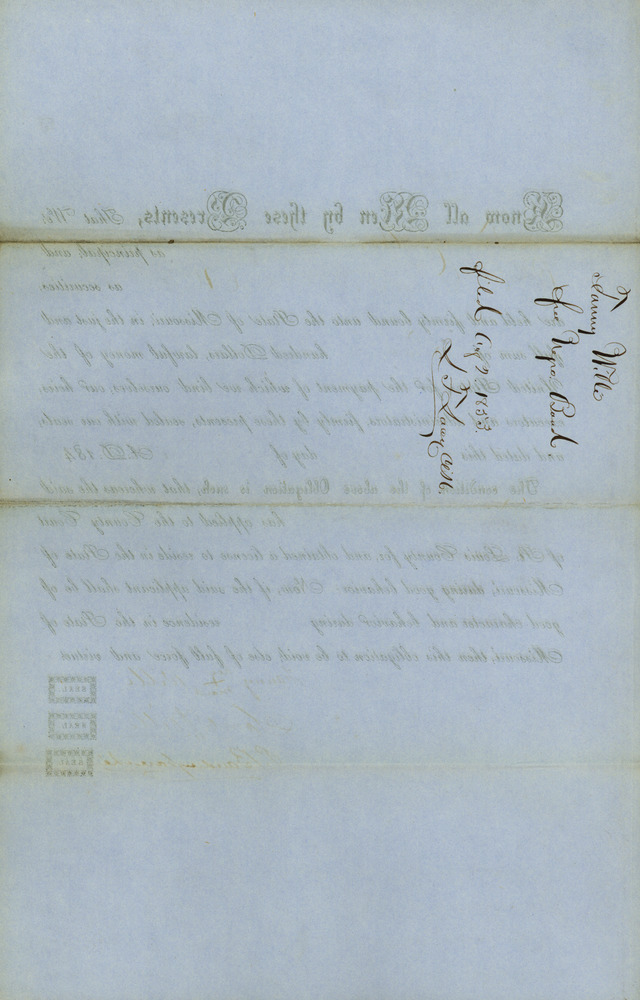 Fanny Wills
free Negro Bond
filed Aug 9. 1853.
Know all Men by these Presents, That We
as principal, and
as securities
are held and firmly bound unto the State of Missouri, in the just and
sum of hundred Dollars, lawful money of the
United States, for the payment of which we bind ourselves, our heirs,
executors and administrators, firmly by these presents, sealed with our seals,
and dated this day of A. D. 184
The condition of the above Obligation is such, that whereas the said
has applied to the County Court
of St. Louis County for, and obtained a license to reside in the State of
Missouri, during good behavior: Now, if the said applicant shall be of
good character and behavior during residence in the State of
Missouri, then this obligation to be void, else of full force and virtue.
SEAL
SEAL
SEAL